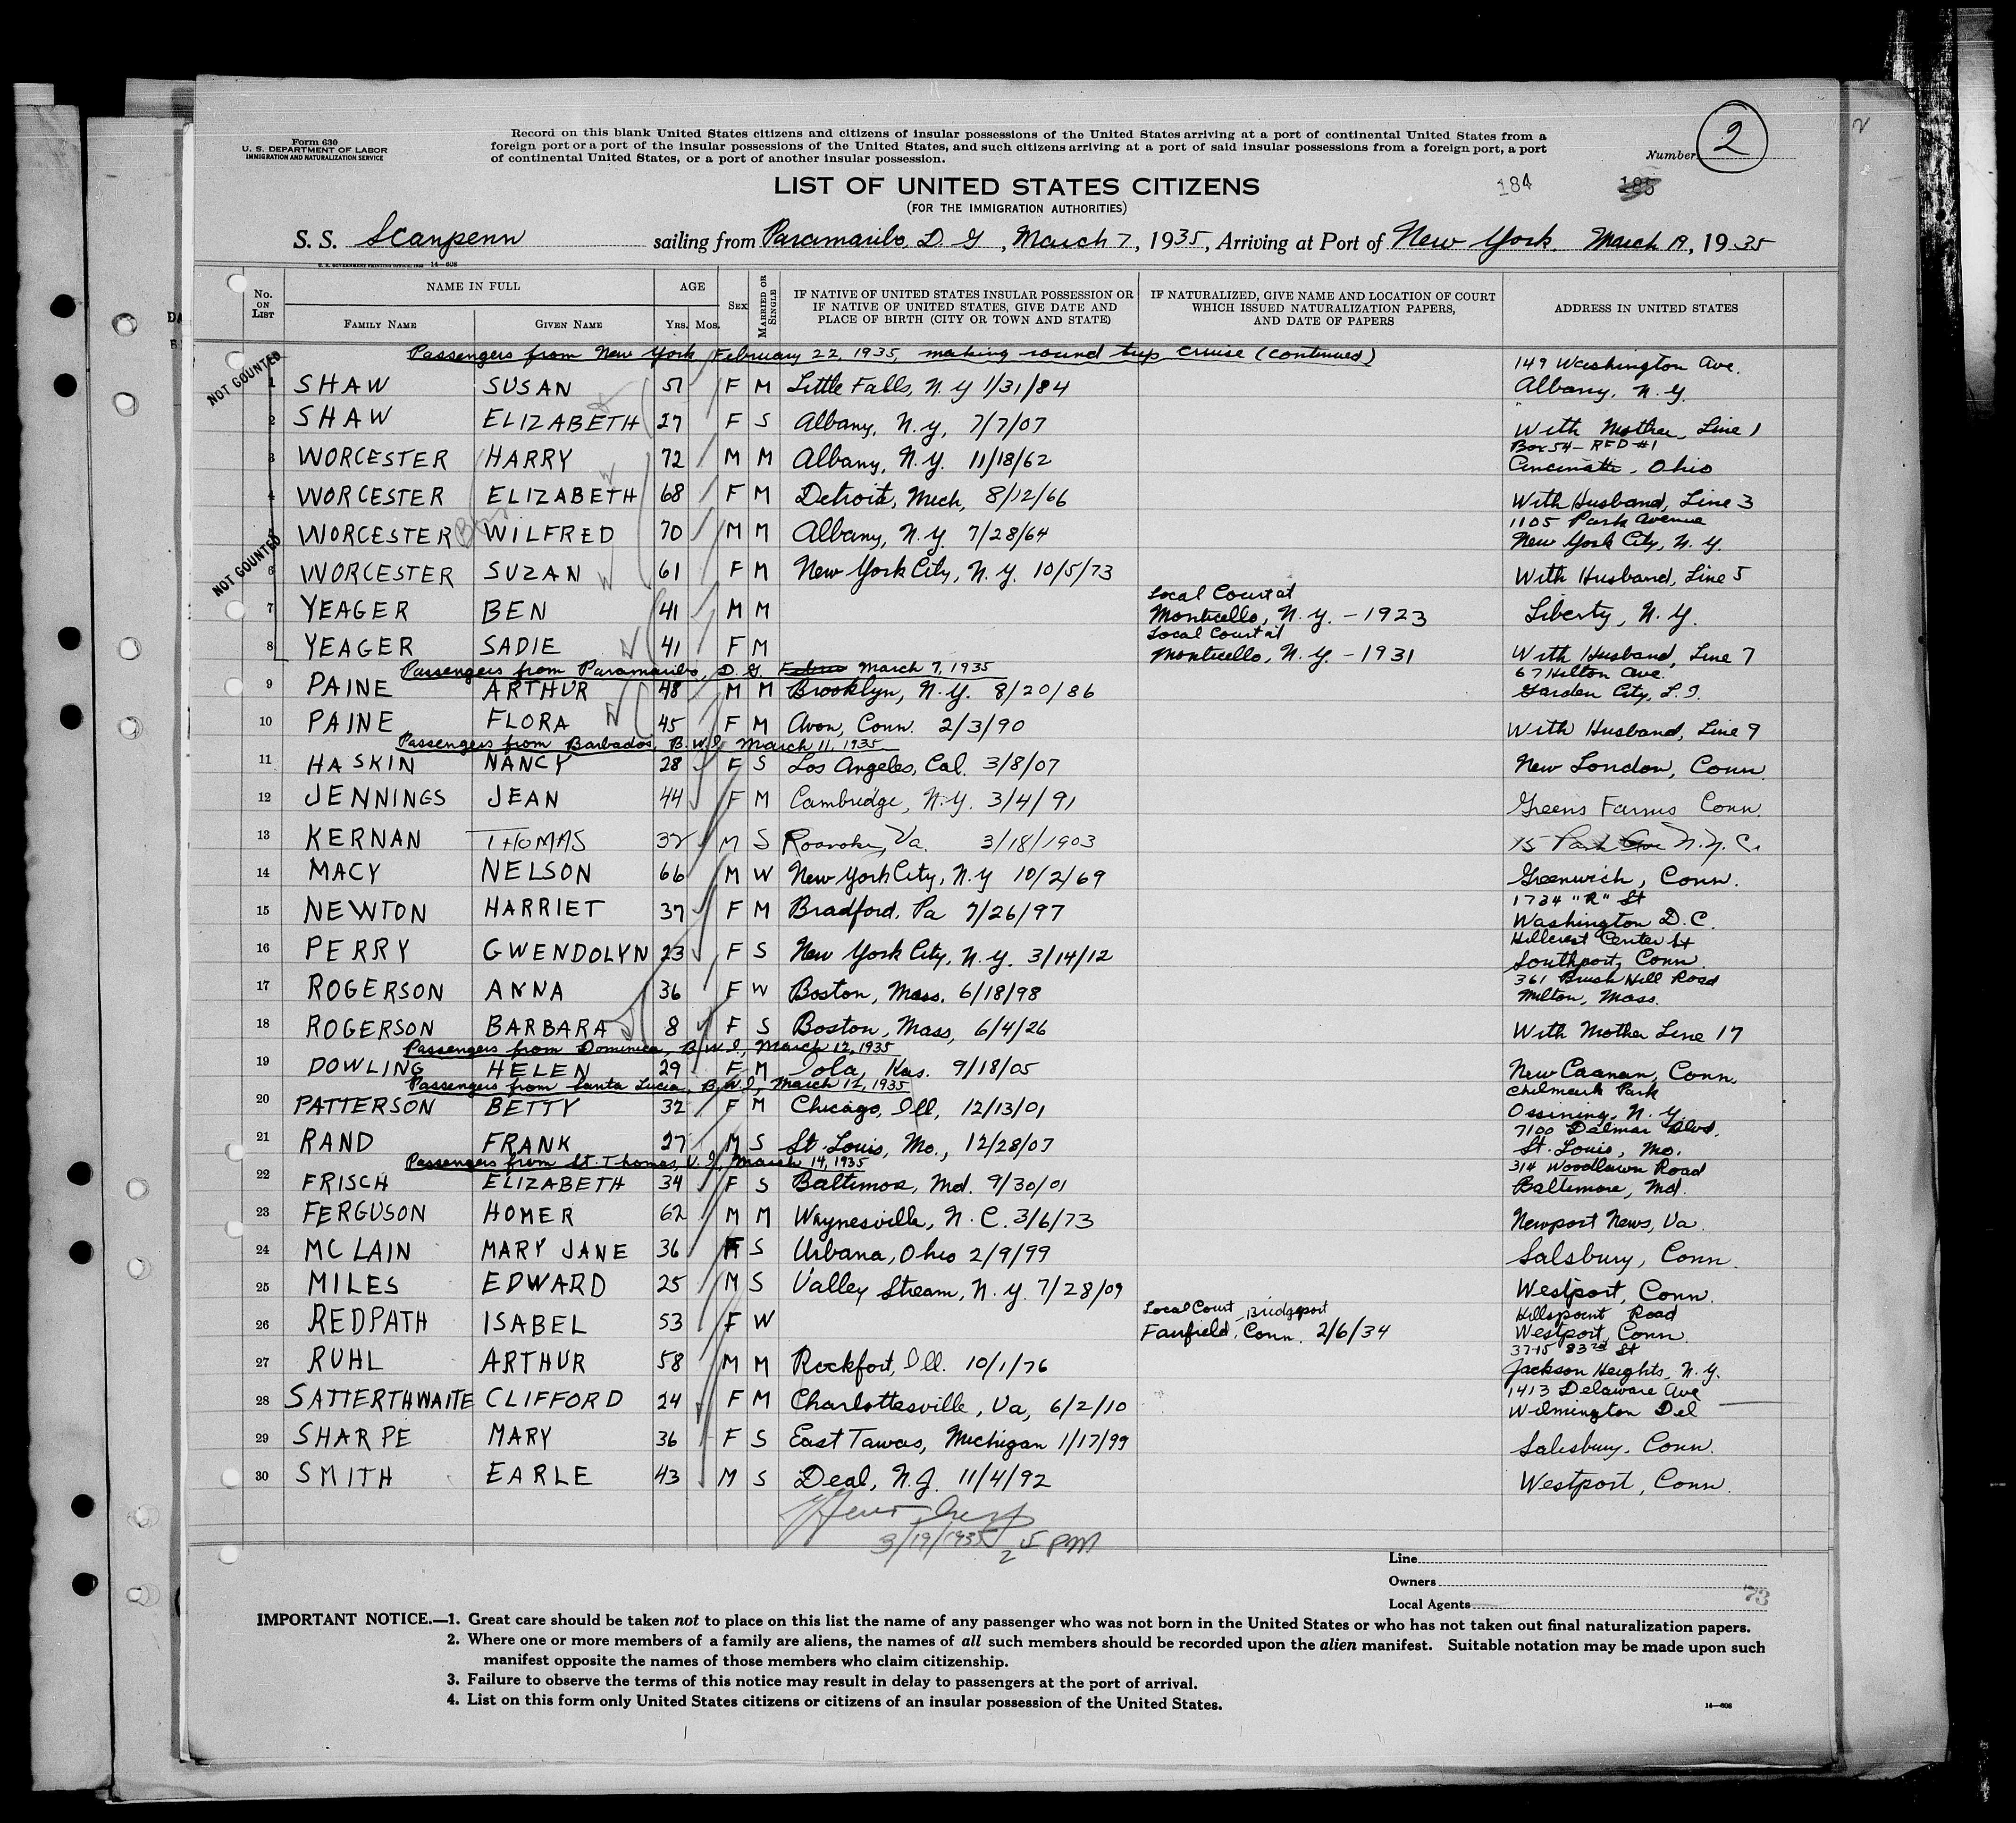 Form 630
U. S. DEPARTMENT OF LABOR
IMMIGRATION AND NATURALIZATION SERVICE
Record on this blank United States citizens and citizens of insular possessions of the United States arriving at a port of continental United States from a
foreign port or a port of the insular possessions of the United States, and such citizens arriving at a port of said insular possessions from a foreign port, a port
of continental United States, or a port of another insular possession.
Number 2
LIST OF UNITED STATES CITIZENS
184 185
(FOR THE IMMIGRATION AUTHORITIES)
S. S. Scanpenn sailing from Paramaribo, D. G, March 7, 1935, Arriving at Port of New York. March 19, 1935
No. ON LIST
NAME IN FULL
FAMILY NAME
GIVEN NAME
AGE
YRS. MOS.
SEX
MARRIED OR SINGLE
IF NATIVE OF UNITED STATES INSULAR POSSESSION OR
IF NATIVE OF UNITED STATES, GIVE DATE AND
PLACE OF BIRTH (CITY OR TOWN AND STATE)
IF NATURALIZED, GIVE NAME AND LOCATION OF COURT
WHICH ISSUED NATURALIZATION PAPERS,
AND DATE OF PAPERS
ADDRESS IN UNITED STATES
NOT COUNTED
Passengers from New York February 22, 1935, making round trip cruise (continued)
1 SHAW SUSAN 51 F M Little Falls, N. Y 1/31/84 149 Washington Ave. Albany, N. Y.
2 SHAW ELIZABETH 27 F S Albany, N. Y, 7/7/07 With Mother, Line 1
3 WORCESTER HARRY 72 M M Albany, N. Y. 11/18/62 Box 54 - RFD #1 Cincinatti, Ohio
4 WORCESTER ELIZABETH 68 F M Detroit, Mich, 8/12/66 With Husband, Line 3
NOT COUNTED
5 WORCESTER WILFRED 70 M M Albany, N. Y. 7/28/64 1105 Park Avenue New York City, N. Y.
6 WORCESTER SUZAN 61 F M New York City, N. Y. 10/5/73 With Husband, Line 5
7 YEAGER BEN 41 M M Local Court at Monticello, N. Y. - 1923 Liberty, N. Y.
8 YEAGER SADIE 41 F M Local Court at Monticello, N. Y. - 1931 With Husband, Line 7
Passengers from Paramaribo, D. G. March 7, 1935
9 PAINE ARTHUR 48 M M Brooklyn, N. Y. 8/20/86 67 Hilton Ave. Garden City, L. I.
10 PAINE FLORA 45 F M Avon, Conn. 2/3/90 With Husband, Line 9
Passengers from Barbados, B. W. I, March 11, 1935
11 HASKIN NANCY 28 F S Los Angeles, Cal. 3/8/07 New London, Conn.
12 JENNINGS JEAN 44 F M Cambridge, N. Y. 3/4/91 Greens Farms Conn.
13 KERNAN THOMAS 32 M S Roanoke, Va. 3/18/1903 15 Park Ave N. Y. C.
14 MACY NELSON 66 M W New York City, N. Y 10/2/69 Greenwich, Conn.
15 NEWTON HARRIET 37 F M Bradford, Pa 7/26/97 1734 "R" St Washington D. C.
16 PERRY GWENDOLYN 23 F S New York City, N. Y. 3/14/12 Hillcrest Center St Southport, Conn.
17 ROGERSON ANNA 36 F W Boston, Mass. 6/18/98 361 Brush Hill Road Milton, Mass.
18 ROGERSON BARBARA 8 F S Boston, Mass, 6/4/26 With Mother Line 17
Passengers from Dominica, B. W. I, March 12, 1935
19 DOWLING HELEN 29 F M Iola, Kas. 9/18/05 New Caanan, Conn.
Passengers from Santa Lucia, B. W. I, March 12, 1935
20 PATTERSON BETTY 32 F M Chicago, Ill, 12/13/01 Chilmark Park Ossining, N. Y.
21 RAND FRANK 27 M S St. Louis, Mo., 12/28/07 7100 Delmar Blvd. St. Louis, Mo.
Passengers from St. Thomas, V. I, March 14, 1935
22 FRISCH ELIZABETH 34 F S Baltimore, Md. 9/30/01 314 Woodlawn Road Baltimore, Md.
23 FERGUSON HOMER 62 M M Waynesville, N. C. 3/6/73 Newport News, Va.
24 MC LAIN MARY JANE 36 F S Urbana, Ohio 2/9/99 Salsbury, Conn.
25 MILES EDWARD 25 M S Valley Stream, N. Y. 7/28/09 Westport, Conn.
26 REDPATH ISABEL 53 F W Local Court, Bridgeport Fairfield, Conn. 2/6/34 Hillspoint Road Westport, Conn.
27 RUHL ARTHUR 58 M M Rockfort, Ill. 10/1/76 3715 83rd St Jackson Heights, N. Y.
28 SATTERTHWAITE CLIFFORD 24 F M Charlottesville, Va, 6/2/10 1413 Delaware Ave Wilmington Del
29 SHARPE MARY 36 F S East Tawas, Michigan 1/17/99 Salisbury, Conn.
30 SMITH EARLE 43 M S Deal, N. J. 11/4/92 Westport, Conn.
3/19/1935 2 5 PM
Line
Owners
Local Agents
73
IMPORTANT NOTICE.—1. Great care should be taken not to place on this list the name of any passenger who was not born in the United States or who has not taken out final naturalization papers.
2. Where one or more members of a family are aliens, the names of all such members should be recorded upon the alien manifest. Suitable notation may be made upon such
manifest opposite the names of those members who claim citizenship.
3. Failure to observe the terms of this notice may result in delay to passengers at the port of arrival.
4. List on this form only United States citizens or citizens of an insular possession of the United States.
14—608